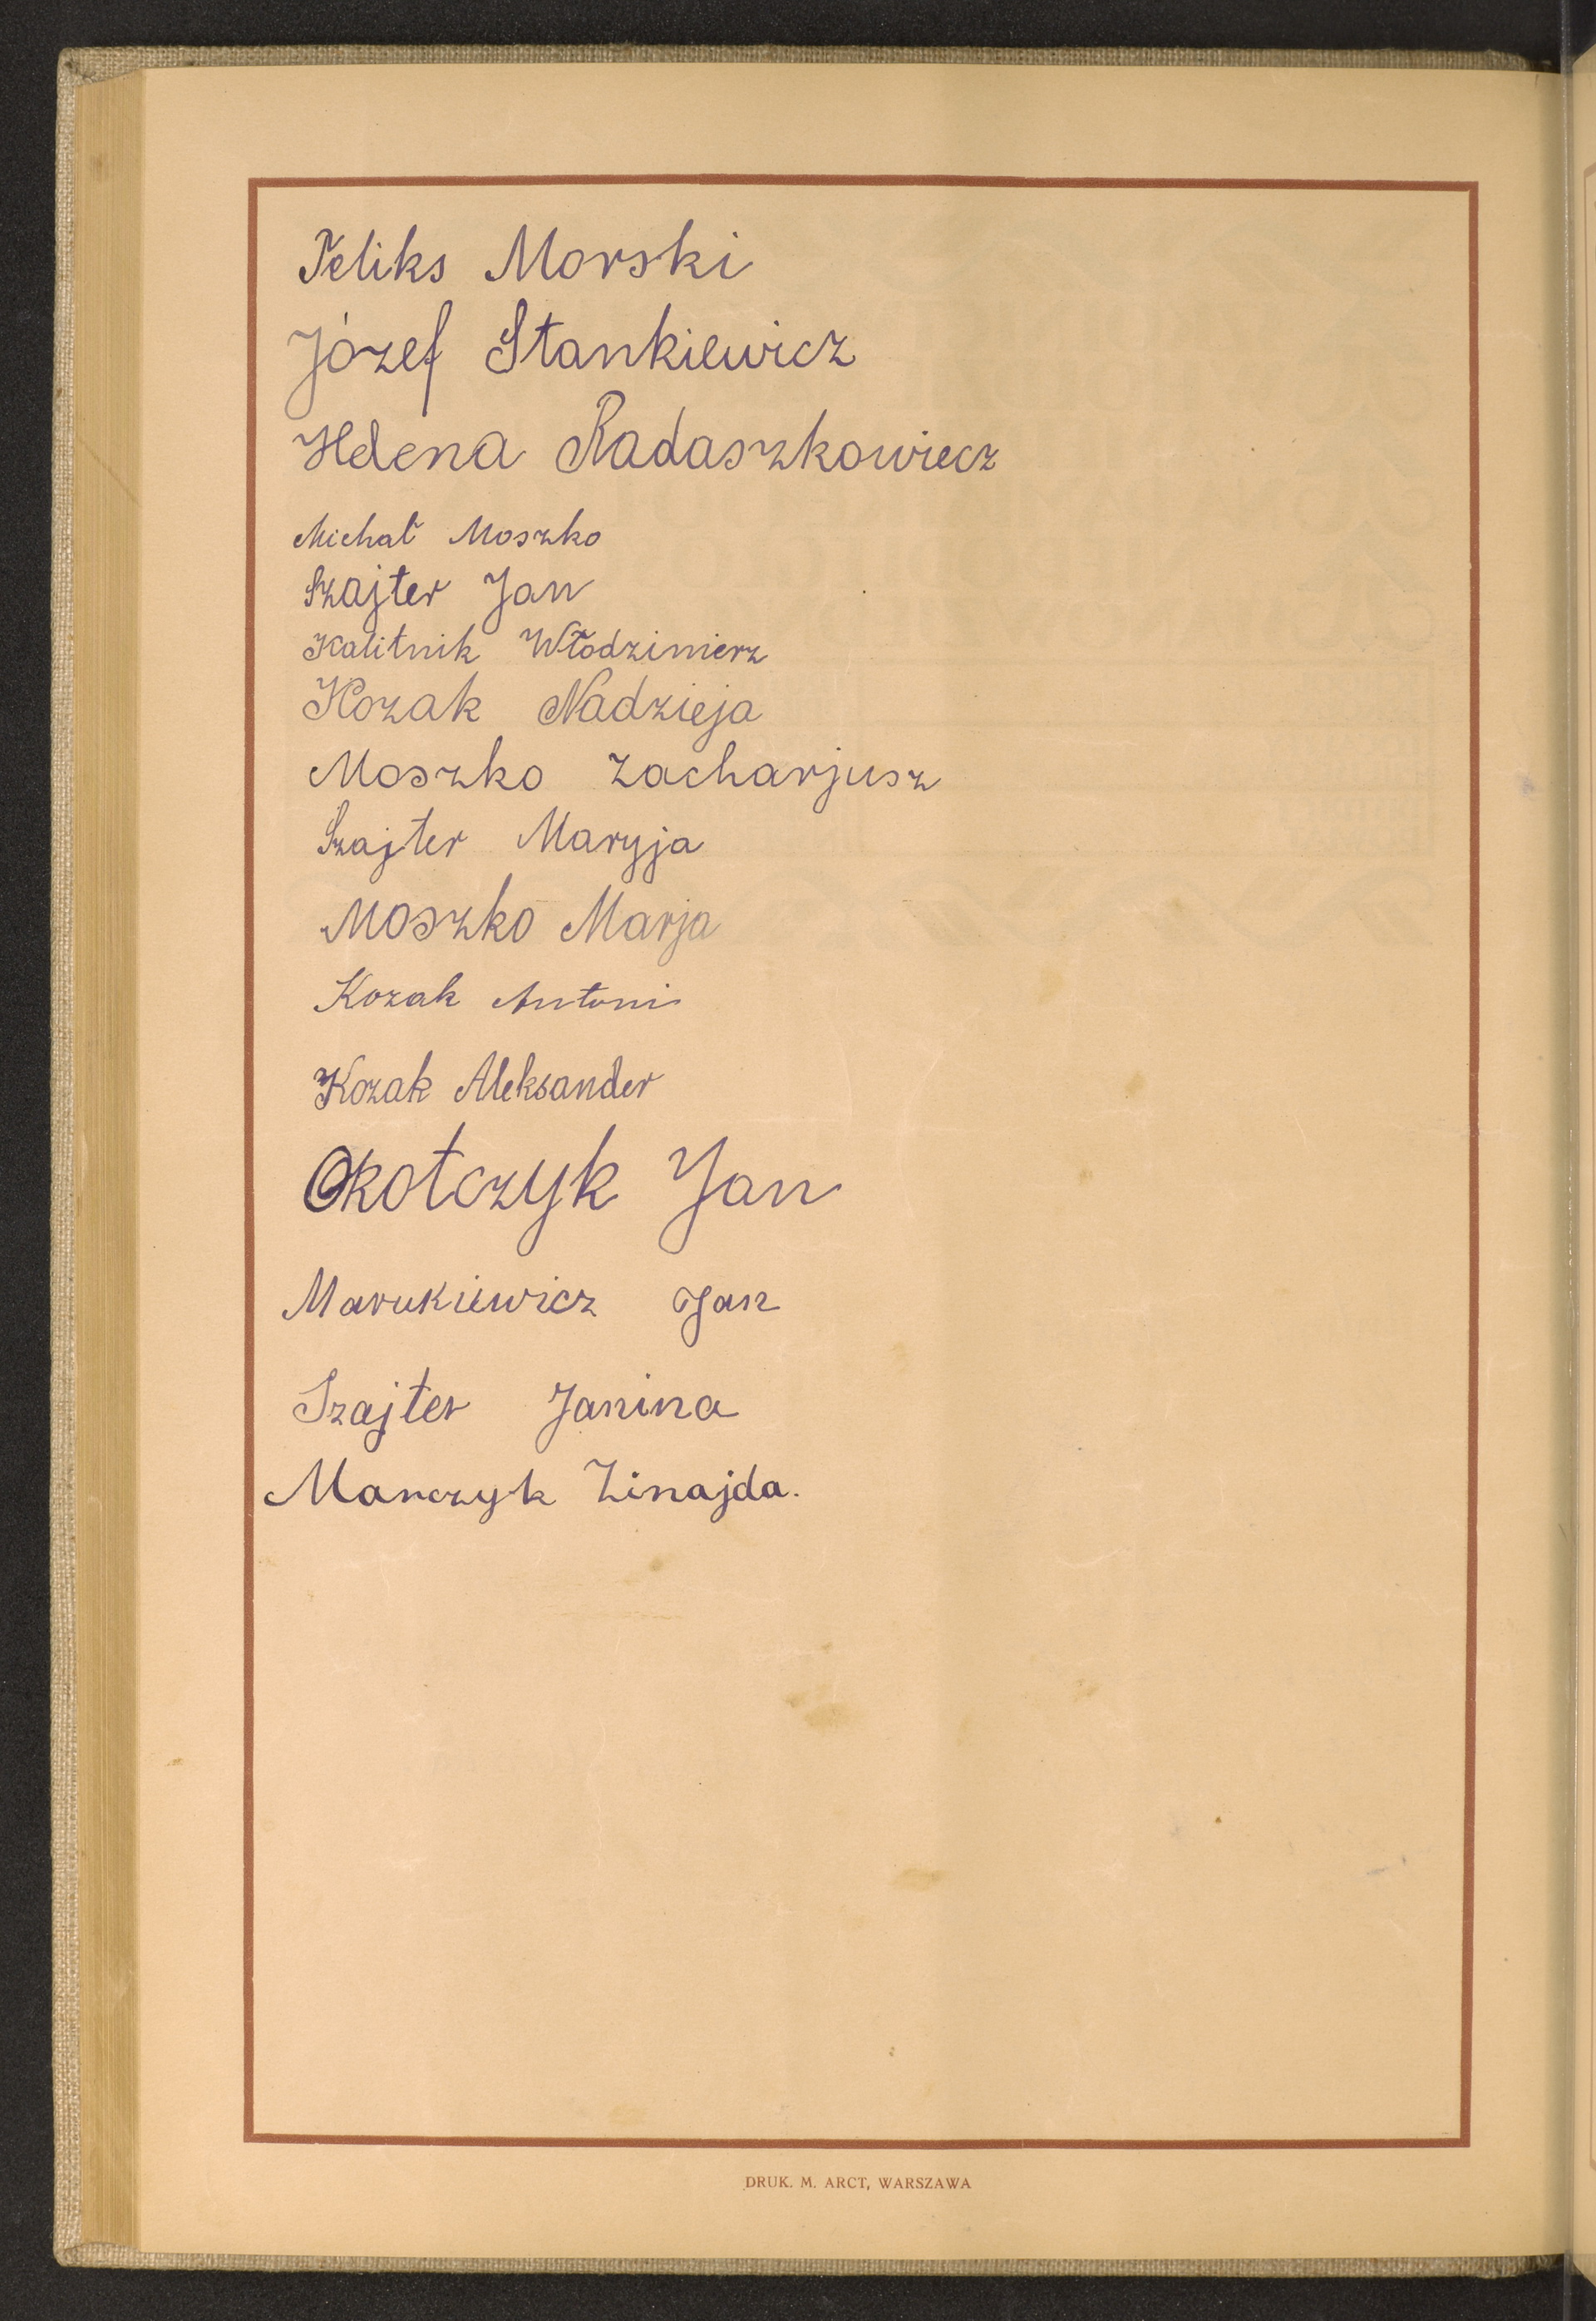 Feliks Morski
Józef Stankiewicz
Helena Radaszkowiecz
Michał Moszko
Szajter Jan
Kalitnik Włodzimierz
Kozak Nadzieja
Moszko Zacharjusz
Szajter Maryja
Moszko Marja
Kozak Antoni
Kozak Aleksander
Okołczyk Jan
Marukiewicz Jan
Szajter Janina
Marczyk Zinajda.
DRUK. M. ARCT, WARSZAWA